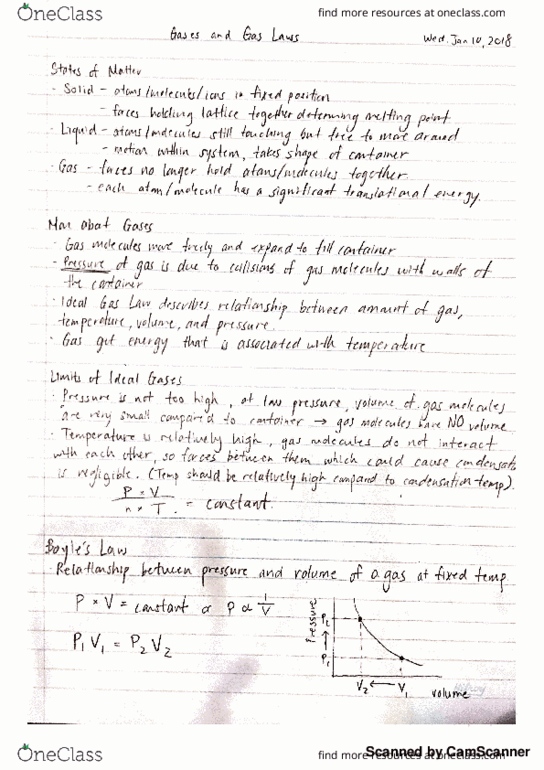 OneClass
find more resources at oneclass.com
Gases and Gas Laws
Wed. Jan 10, 2018
States of Matter
- Solid - atoms/molecules/ions in fixed position
- forces holding lattice together determining melting point
- Liquid - atoms/molecules still touching but free to move around
- motion within system, takes shape of container
- Gas - forces no longer hold atoms/molecules together
- each atom/molecule has a significant translational energy.
More about Gases
- Gas molecules move freely and expand to fill container
- Pressure of gas is due to collisions of gas molecules with walls of
the container
- Ideal Gas Law describes relationship between amount of gas,
temperature, volume, and pressure.
- Gas get energy that is associated with temperature
Limits of Ideal Gases
- Pressure is not too high, at low pressure, volume of gas molecules
are very small compared to container → gas molecules have NO volume
- Temperature is relatively high, gas molecules do not interact
with each other, so forces between them which could cause condensate
is negligible. (Temp should be relatively high compared to condensation temp).
P × V
n × T = constant.
Boyle's Law
- Relationship between pressure and volume of a gas at fixed temp
P × V = constant or P ∝ 1/V
P₁V₁ = P₂V₂
Pressure →
P₂
P₁
V₂ ← V₁
volume
OneClass
find more resources at oneclass.com
Scanned by CamScanner